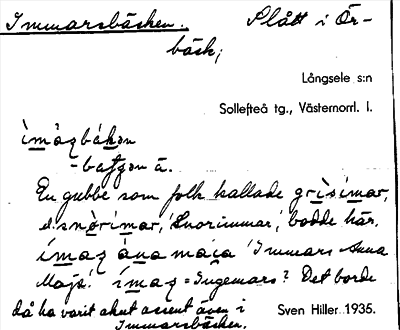 Immarsbäcken. Plått i Ör-
bäck;
Långsele s:n
Sollefteå tg., Västernorrl. l.
ìmàʂbákən
-bæʈʂən ä.
En gubbe som folk kallade grìsìmar,
snòrìmar, 'Snorimmar,' bodde här.
ímaʂ ána mája 'Immars Anna
Maja.' ímaʂ = Ingemars? Det borde
då ha varit akut accent även i
Immarsbäcken.
Sven Hiller 1935.